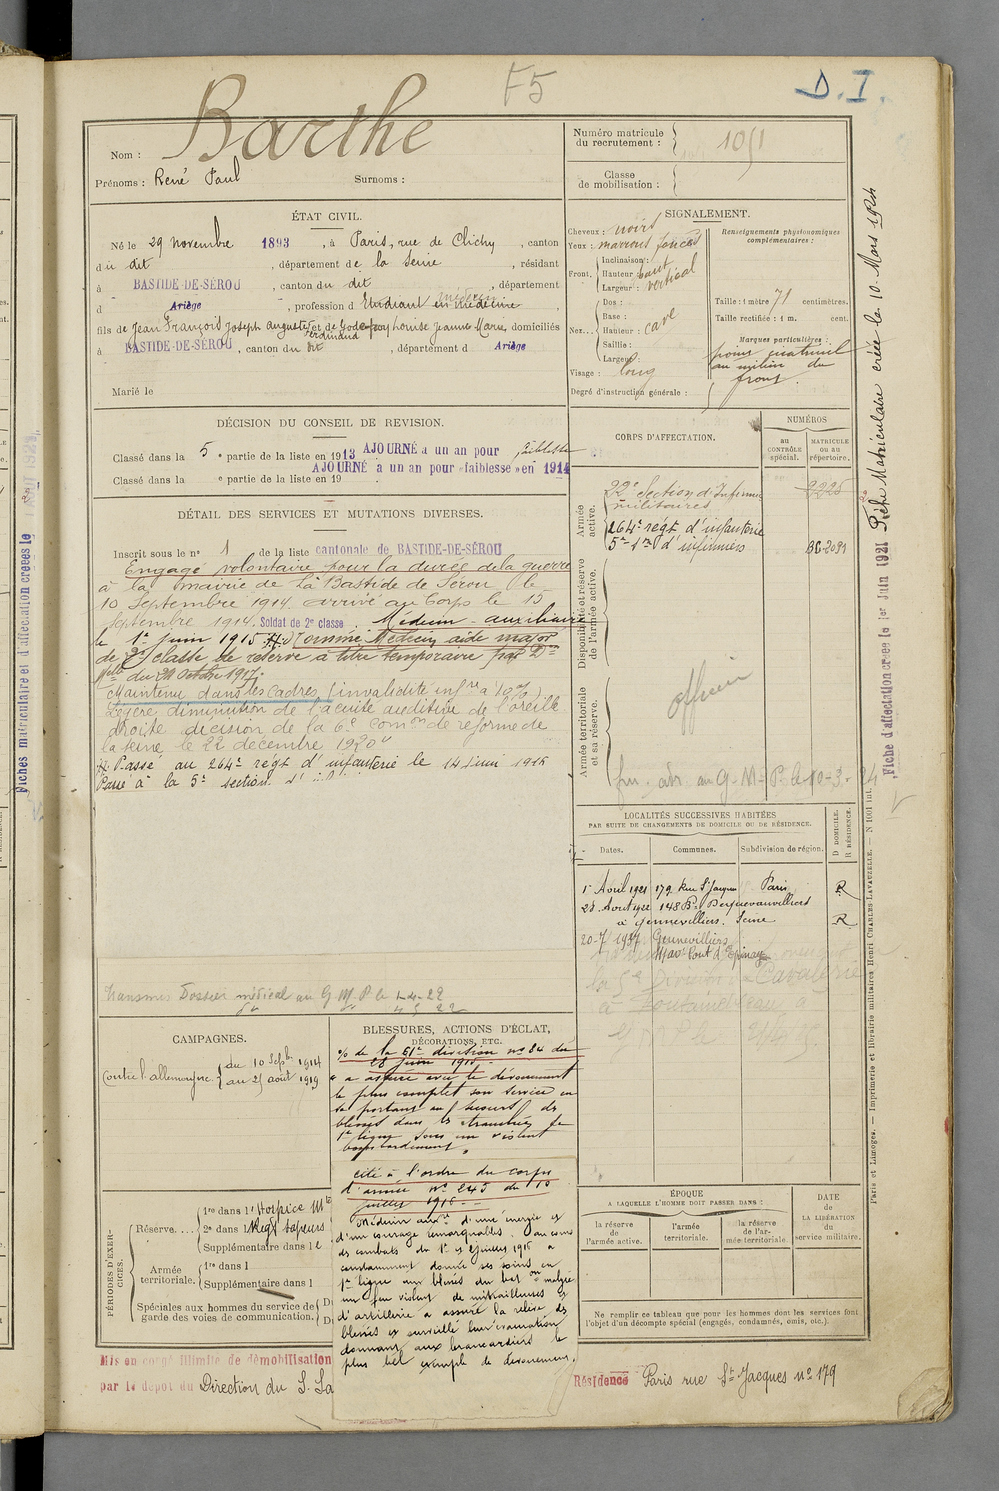 F5
D.I.
Nom : Barthe
Prénoms : René Paul Surnoms :
Numéro matricule du recrutement : 1051
Classe de mobilisation :
ÉTAT CIVIL.
Né le 29 novembre 1893, à Paris, rue de Clichy, canton
du dit, département de la Seine, résidant
à BASTIDE-DE-SÉROU, canton du dit, département
d Ariège, profession d'Etudiant en médecine
fils de Jean François Joseph Auguste Ferdinand et de Godefroy Louise Jeanne Marie, domiciliés
à BASTIDE-DE-SÉROU, canton du dit, département d Ariège
Marié le
SIGNALEMENT.
Cheveux : noirs
Yeux : marrons foncés
Front, Inclinaison :
Hauteur : haut
Largeur : vertical
Nez... Dos :
Base :
Hauteur : cave
Saillie :
Largeur :
Visage : long
Degré d'instruction générale :
Renseignements physionomiques complémentaires :
Taille : 1 mètre 71 centimètres.
Taille rectifiée : 1 m. cent.
Marques particulières :
au milieu du
front.
DÉCISION DU CONSEIL DE REVISION.
Classé dans la 5e partie de la liste en 1913 AJOURNÉ à un an pour faiblesse
AJOURNÉ à un an pour « faiblesse » en 1914
Classé dans la e partie de la liste en 19
DÉTAIL DES SERVICES ET MUTATIONS DIVERSES.
Inscrit sous le n° 1 de la liste cantonale de BASTIDE-DE-SÉROU
Engagé volontaire pour la durée de la guerre
à la mairie de La Bastide de Sérou le
10 Septembre 1914. arrivé au Corps le 15
Septembre 1914. Soldat de 2e classe. Médecin-auxiliaire
le 1er Juin 1915. Nommé Médecin aide major
de 2e classe de réserve à titre temporaire par Don
Mlle du 20 octobre 1917.
Maintenu dans les cadres (invalidité infre à 10%)
Légère diminution de l'acuité auditive de l'oreille
droite décision de la 6e Comon de réforme de
la Seine le 22 décembre 1920
Passé au 264e régt d'infanterie le 14 juin 1915
Passé à la 5e section d'
CORPS D'AFFECTATION.
NUMÉROS
au CONTRÔLE spécial.
MATRICULE ou au répertoire.
Armée active.
22e Section d'Infirmiers militaires 2225
264e régt d'infanterie
5e d'infirmiers
Disponibilité et réserve de l'armée active.
officier
Armée territoriale et sa réserve.
au G. M. P. le 10-3-24
LOCALITÉS SUCCESSIVES HABITÉES
PAR SUITE DE CHANGEMENTS DE DOMICILE OU DE RÉSIDENCE.
Dates. Communes. Subdivision de région. D DOMICILE. R RÉSIDENCE.
1er Avril 1921 179 Rue St Jacques Paris R
28 Aout 1922 148 Bd
à Gennevilliers. Seine R
20-7 1937 Gennevilliers
Pont d'Epinay
la 5e Division de Cavalerie
à Fontainebleau
Transmis Dossier médical au G M P le
CAMPAGNES.
Contre l'allemagne. du 10 Sepbre 1914
au 25 août 1919
BLESSURES, ACTIONS D'ÉCLAT, DÉCORATIONS, ETC.
de la 61e division no 84 du
28 juin 1915
a assuré avec le dévouement
le plus complet son service en
se portant au secours des
blessés dans les tranchées de
1e ligne sous un violent
bombardement.
Cité à l'ordre du corps
d'armée no 245 du 15
juillet 1916
Médecin auxre d'une énergie et
d'un courage remarquables. au cours
des combats du 1er et 2 juillet 1916 a
constamment donné ses soins en
1e ligne aux blessés du bataon malgré
un feu violent de mitrailleuses et
d'artillerie a assuré la relève des
blessés et surveillé leur évacuation
donnant aux brancardiers le
plus bel exemple de dévouement.
PÉRIODES D'EXERCICES.
Réserve.... 1re dans l'Hospice
2e dans
Supplémentaire dans l
Armée territoriale. 1re dans l
Supplémentaire dans l
Spéciales aux hommes du service de garde des voies de communication.
ÉPOQUE
A LAQUELLE L'HOMME DOIT PASSER DANS :
la réserve de l'armée active.
l'armée territoriale.
la réserve de l'armée territoriale.
DATE DE LA LIBÉRATION du service militaire.
Ne remplir ce tableau que pour les hommes dont les services font
l'objet d'un décompte spécial (engagés, condamnés, omis, etc.).
Mis en congé illimité de démobilisation
par le dépôt du Direction du S.
Résidence Paris rue St Jacques no 179
Fiche Matriculaire créée le 10 Mars 1924
Fiche d'affectation créée le 1er Juin 1921
Paris et Limoges. — Imprimerie et librairie militaires Henri CHARLES-LAVAUZELLE. — N 1001 int.
Fiches matriculaire et d'affectation créées le